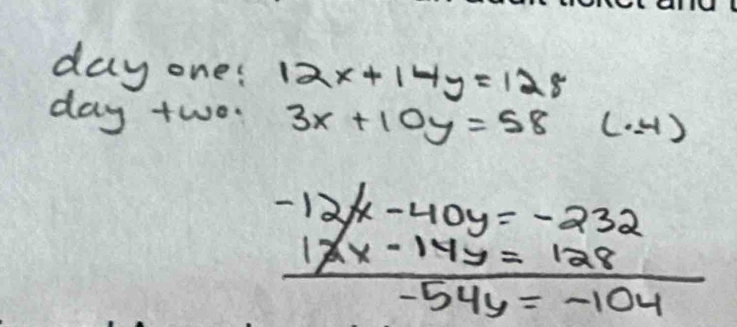 day one: 12x + 14y = 128
day two: 3x + 10y = 58 (·-4)
-12x - 40y = -232
12x - 14y = 128
-54y = -104